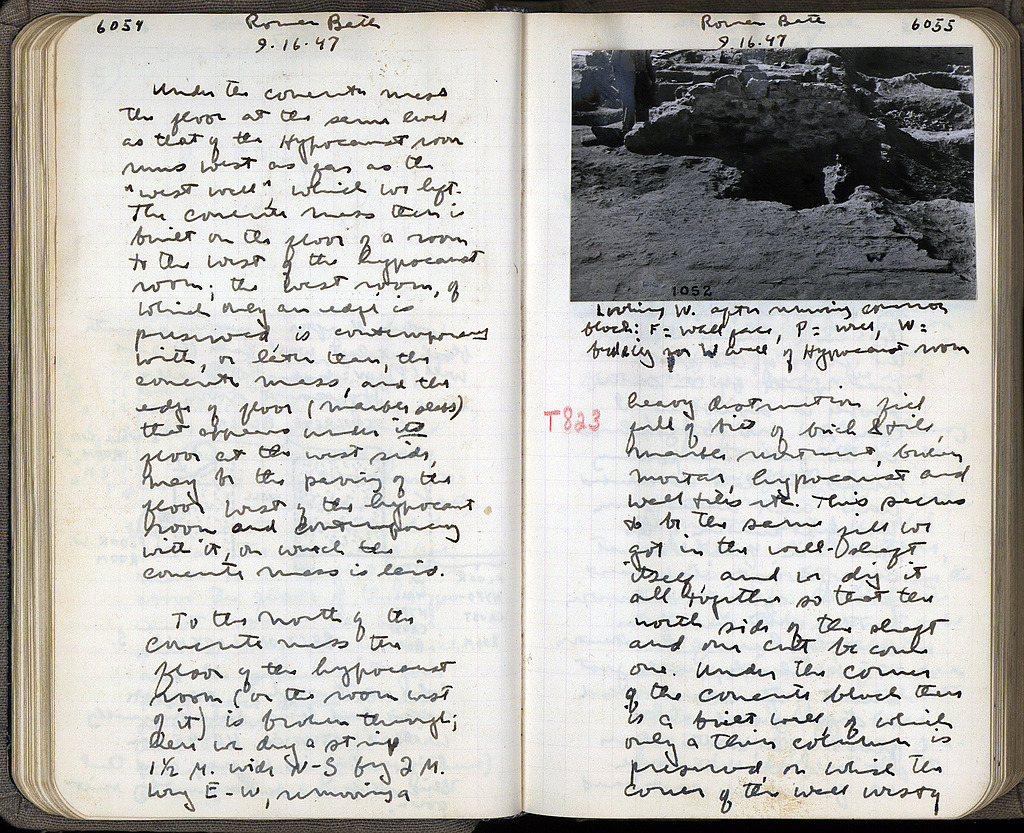 6054
Roman Bath
9.16.47
Under the concrete mass
the floor at the same level
as that of the Hypocaust room
runs west as far as the
"west well", which we left.
The concrete mass then is
built on the floor of a room
to the west of the hypocaust
room; the west room, of
which only an edge is
preserved is contemporary
with, or later than, the
concrete mass, and the
edge of floor (marble slabs)
that appears under its
floor at the west side,
may be the paving of the
floor west of the hypocaust
room and contemporary
with it, on which the
concrete mass is laid.
To the north of the
concrete mass the
floor of the hypocaust
room (or the room west
of it) is broken through;
here we dug a strip
1½ M. wide N-S by 2 M.
long E-W, removing a
Roman Bath
6055
9.16.47
1052
Looking W. after removing concrete
block: F = wall face, P = well, W =
bedding for W wall of Hypocaust room
T823
heavy destruction fill
full of bits of brick & tile,
marble revetment, broken
mortar, hypocaust and
wall tiles etc. This seems
to be the same fill we
got in the well-shaft
itself and we dig it
all together so that the
north side of the shaft
and our cut become
one. Under the corner
of the concrete block there
is a built wall, of which
only a thin column is
preserved, on which the
corner of the wall